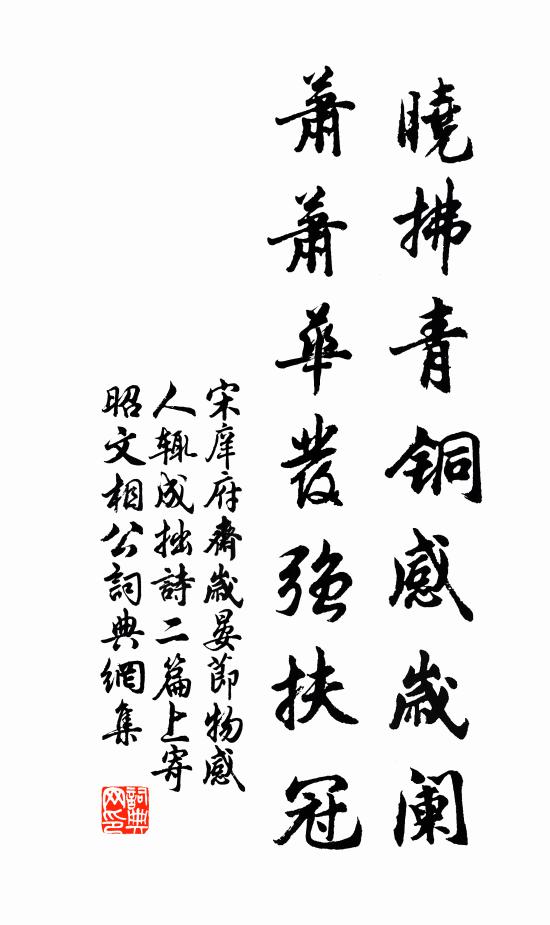 曉拂青銅感歲阑
蕭蕭華發強扶冠
宋庠府齋歲晏節物感
人輒成拙詩二篇上寄
昭文相公詞典網集
詞典
网印